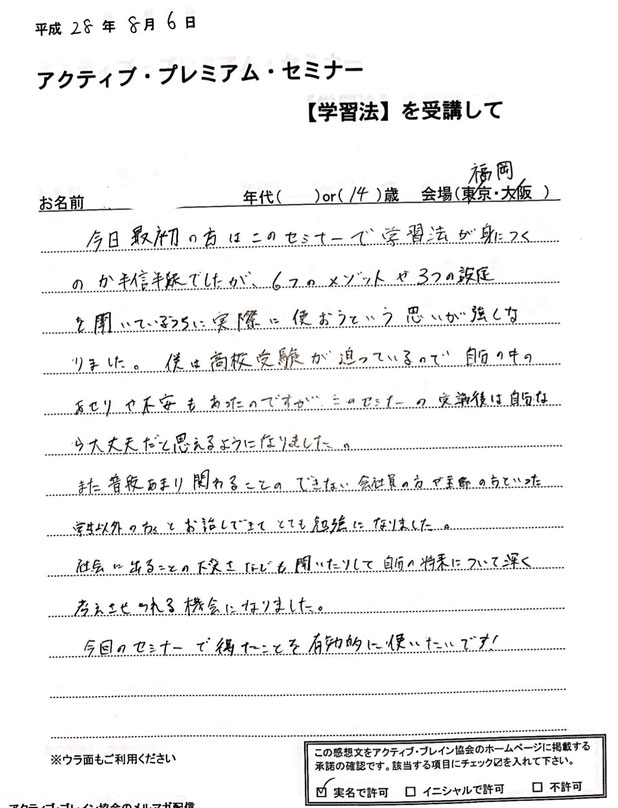 平成 28 年 8 月 6 日
アクティブ・プレミアム・セミナー
【学習法】を受講して
福岡
お名前 年代( )or(14)歳 会場(東京・大阪 )
今日最初の方はこのセミナーで学習法が身につく
のか半信半疑でしたが、6つのメゾットや3つの設定
を聞いているうちに実際に使おうという思いが強くな
りました。僕は高校受験が迫っているので自分の中の
あせりや不安もあったのですが、このセミナーの実講後は自分な
ら大丈夫だと思えるようになりました。
また普段あまり関わることのできない会社員の方や主婦の方といった
学生以外の方々とお話しできてとても勉強になりました。
社会に出ることの大変さなども聞いたりして自分の将来について深く
考えさせられる機会になりました。
今回のセミナーで得たことを有効的に使いたいです!
※ウラ面もご利用ください
この感想文をアクティブ・ブレイン協会のホームページに掲載する
承諾の確認です。該当する項目にチェック☑を入れて下さい。
☑ 実名で許可 □ イニシャルで許可 □ 不許可
アクティブ・ブレイン協会のメルマガ配信